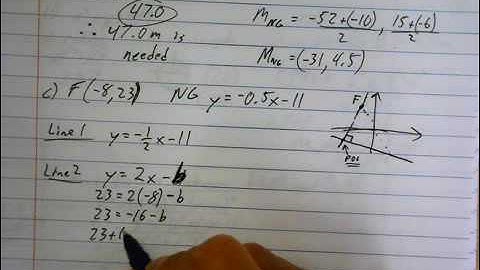 47.0
∴ 47.0 m is
needed
M_NG = -52+(-10)/2, 15+(-6)/2
M_NG = (-31, 4.5)
c) F(-8,23) NG y=-0.5x-11
Line 1 y=-1/2x-11
Line 2 y=2x-b
23=2(-8)-b
23=-16-b
23+1
F
POI